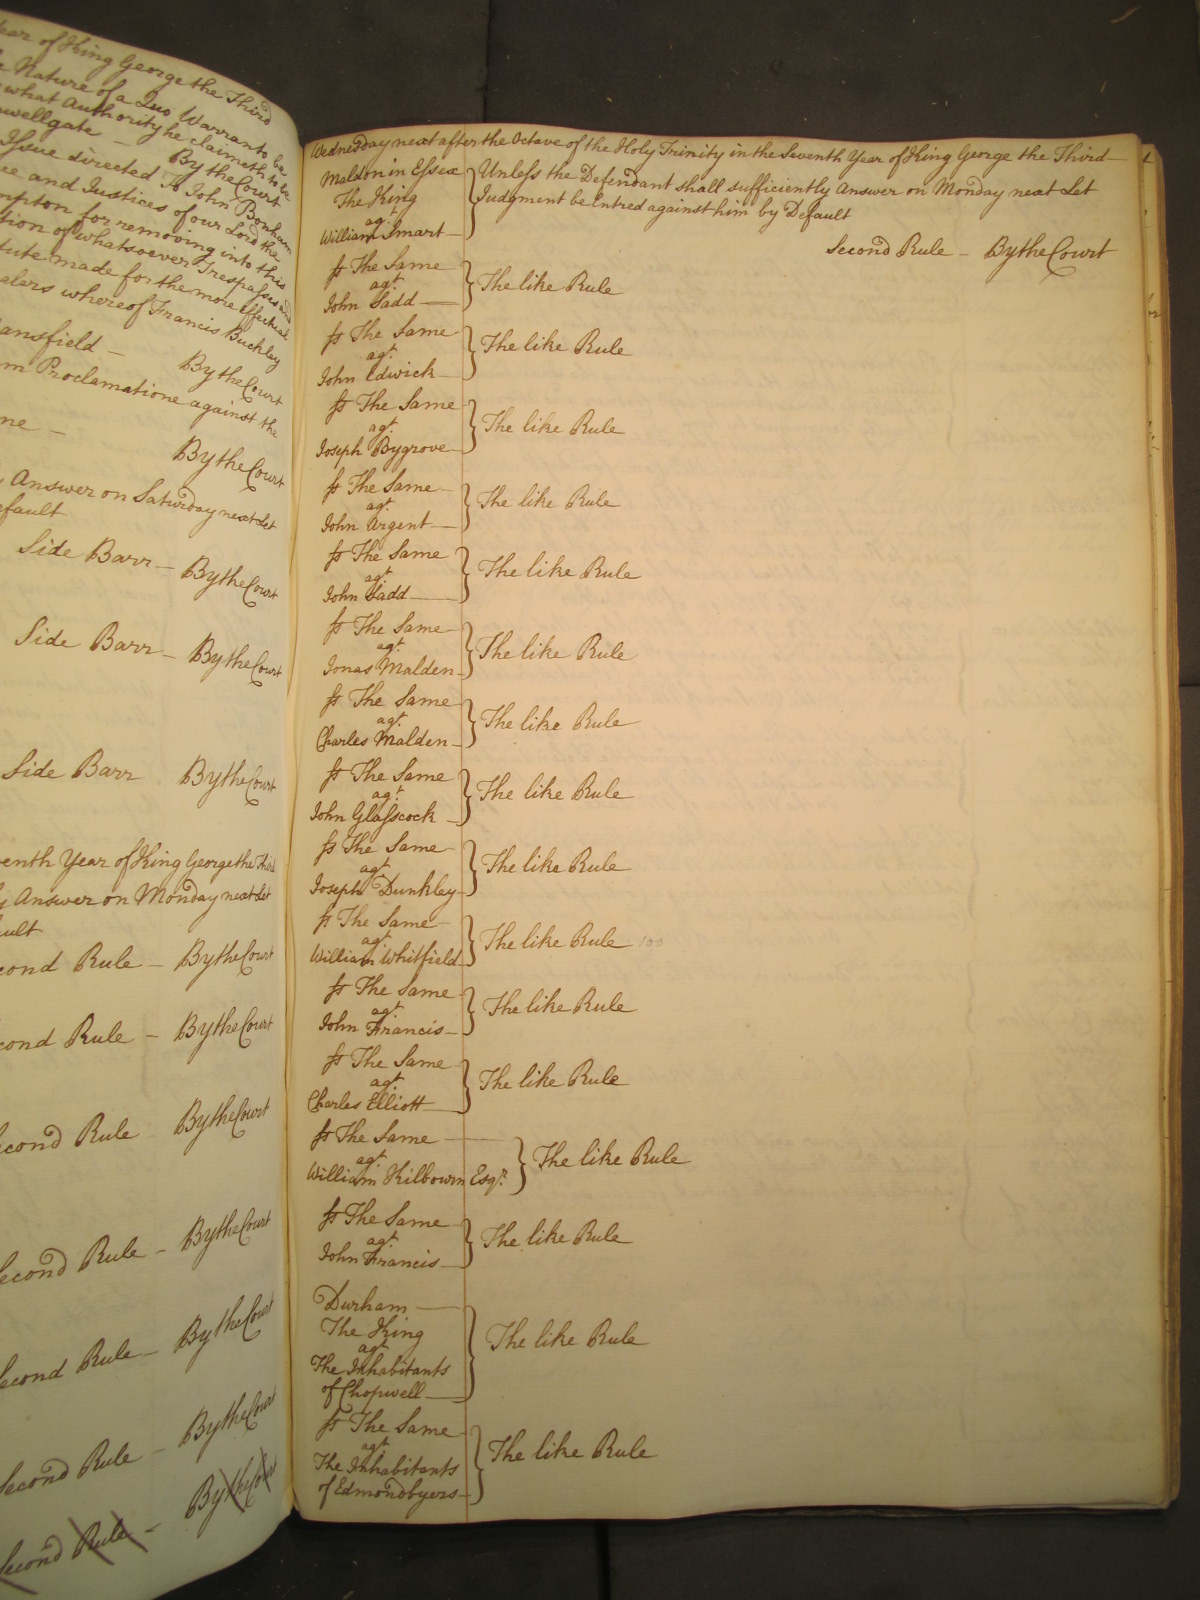 Year of King George the Third
Nature of a Quo Warranto be
what Authority he claimeth to be
wellgate — By the Court
Issue directed to John Bonham
and Justices of our Lord the
for removing into this
of whatsoever Trespasses and
made for the more effectual
whereof Francis Buckley
ansfield — By the Court
m Proclamatione against the
ne — By the Court
Answer on Saturday next Let
efault
Side Barr — By the Court
Side Barr — By the Court
Side Barr By the Court
venth Year of King George the Third
Answer on Monday next Let
ault
cond Rule — By the Court
cond Rule — By the Court
econd Rule By the Court
Second Rule — By the Court
Second Rule — By the Court
Second Rule — By the Court
Second Rule — By the Court
Wednesday next after the Octave of the Holy Trinity in the Seventh Year of King George the Third —
Maldon in Essex Unless the Defendant shall sufficiently Answer on Monday next Let
The King Judgment be Entred against him by Default
agt.
William Smart — Second Rule — By the Court
ss The Same
agt. The like Rule
John Sadd —
ss The Same
agt. The like Rule
John Edwick —
ss The Same
agt. The like Rule
Joseph Bygrove —
ss The Same —
agt. The like Rule
John Argent —
ss The Same
agt. The like Rule
John Sadd —
ss The Same
agt. The like Rule
Jonas Malden —
ss The Same
agt. The like Rule
Charles Malden —
ss The Same
agt. The like Rule
John Glasscock —
ss The Same
agt. The like Rule
Joseph Dunkley —
ss The Same —
agt. The like Rule 100
William Whitfield
ss The Same
agt. The like Rule
John Francis —
ss The Same
agt. The like Rule
Charles Elliott —
ss The Same —
agt. The like Rule
William Kilbowrn Esqr.
ss The Same
agt. The like Rule
John Francis —
Durham —
The King
agt. The like Rule
The Inhabitants
of Chopwell —
ss The Same
agt. The like Rule
The Inhabitants
of Edmondbyers —